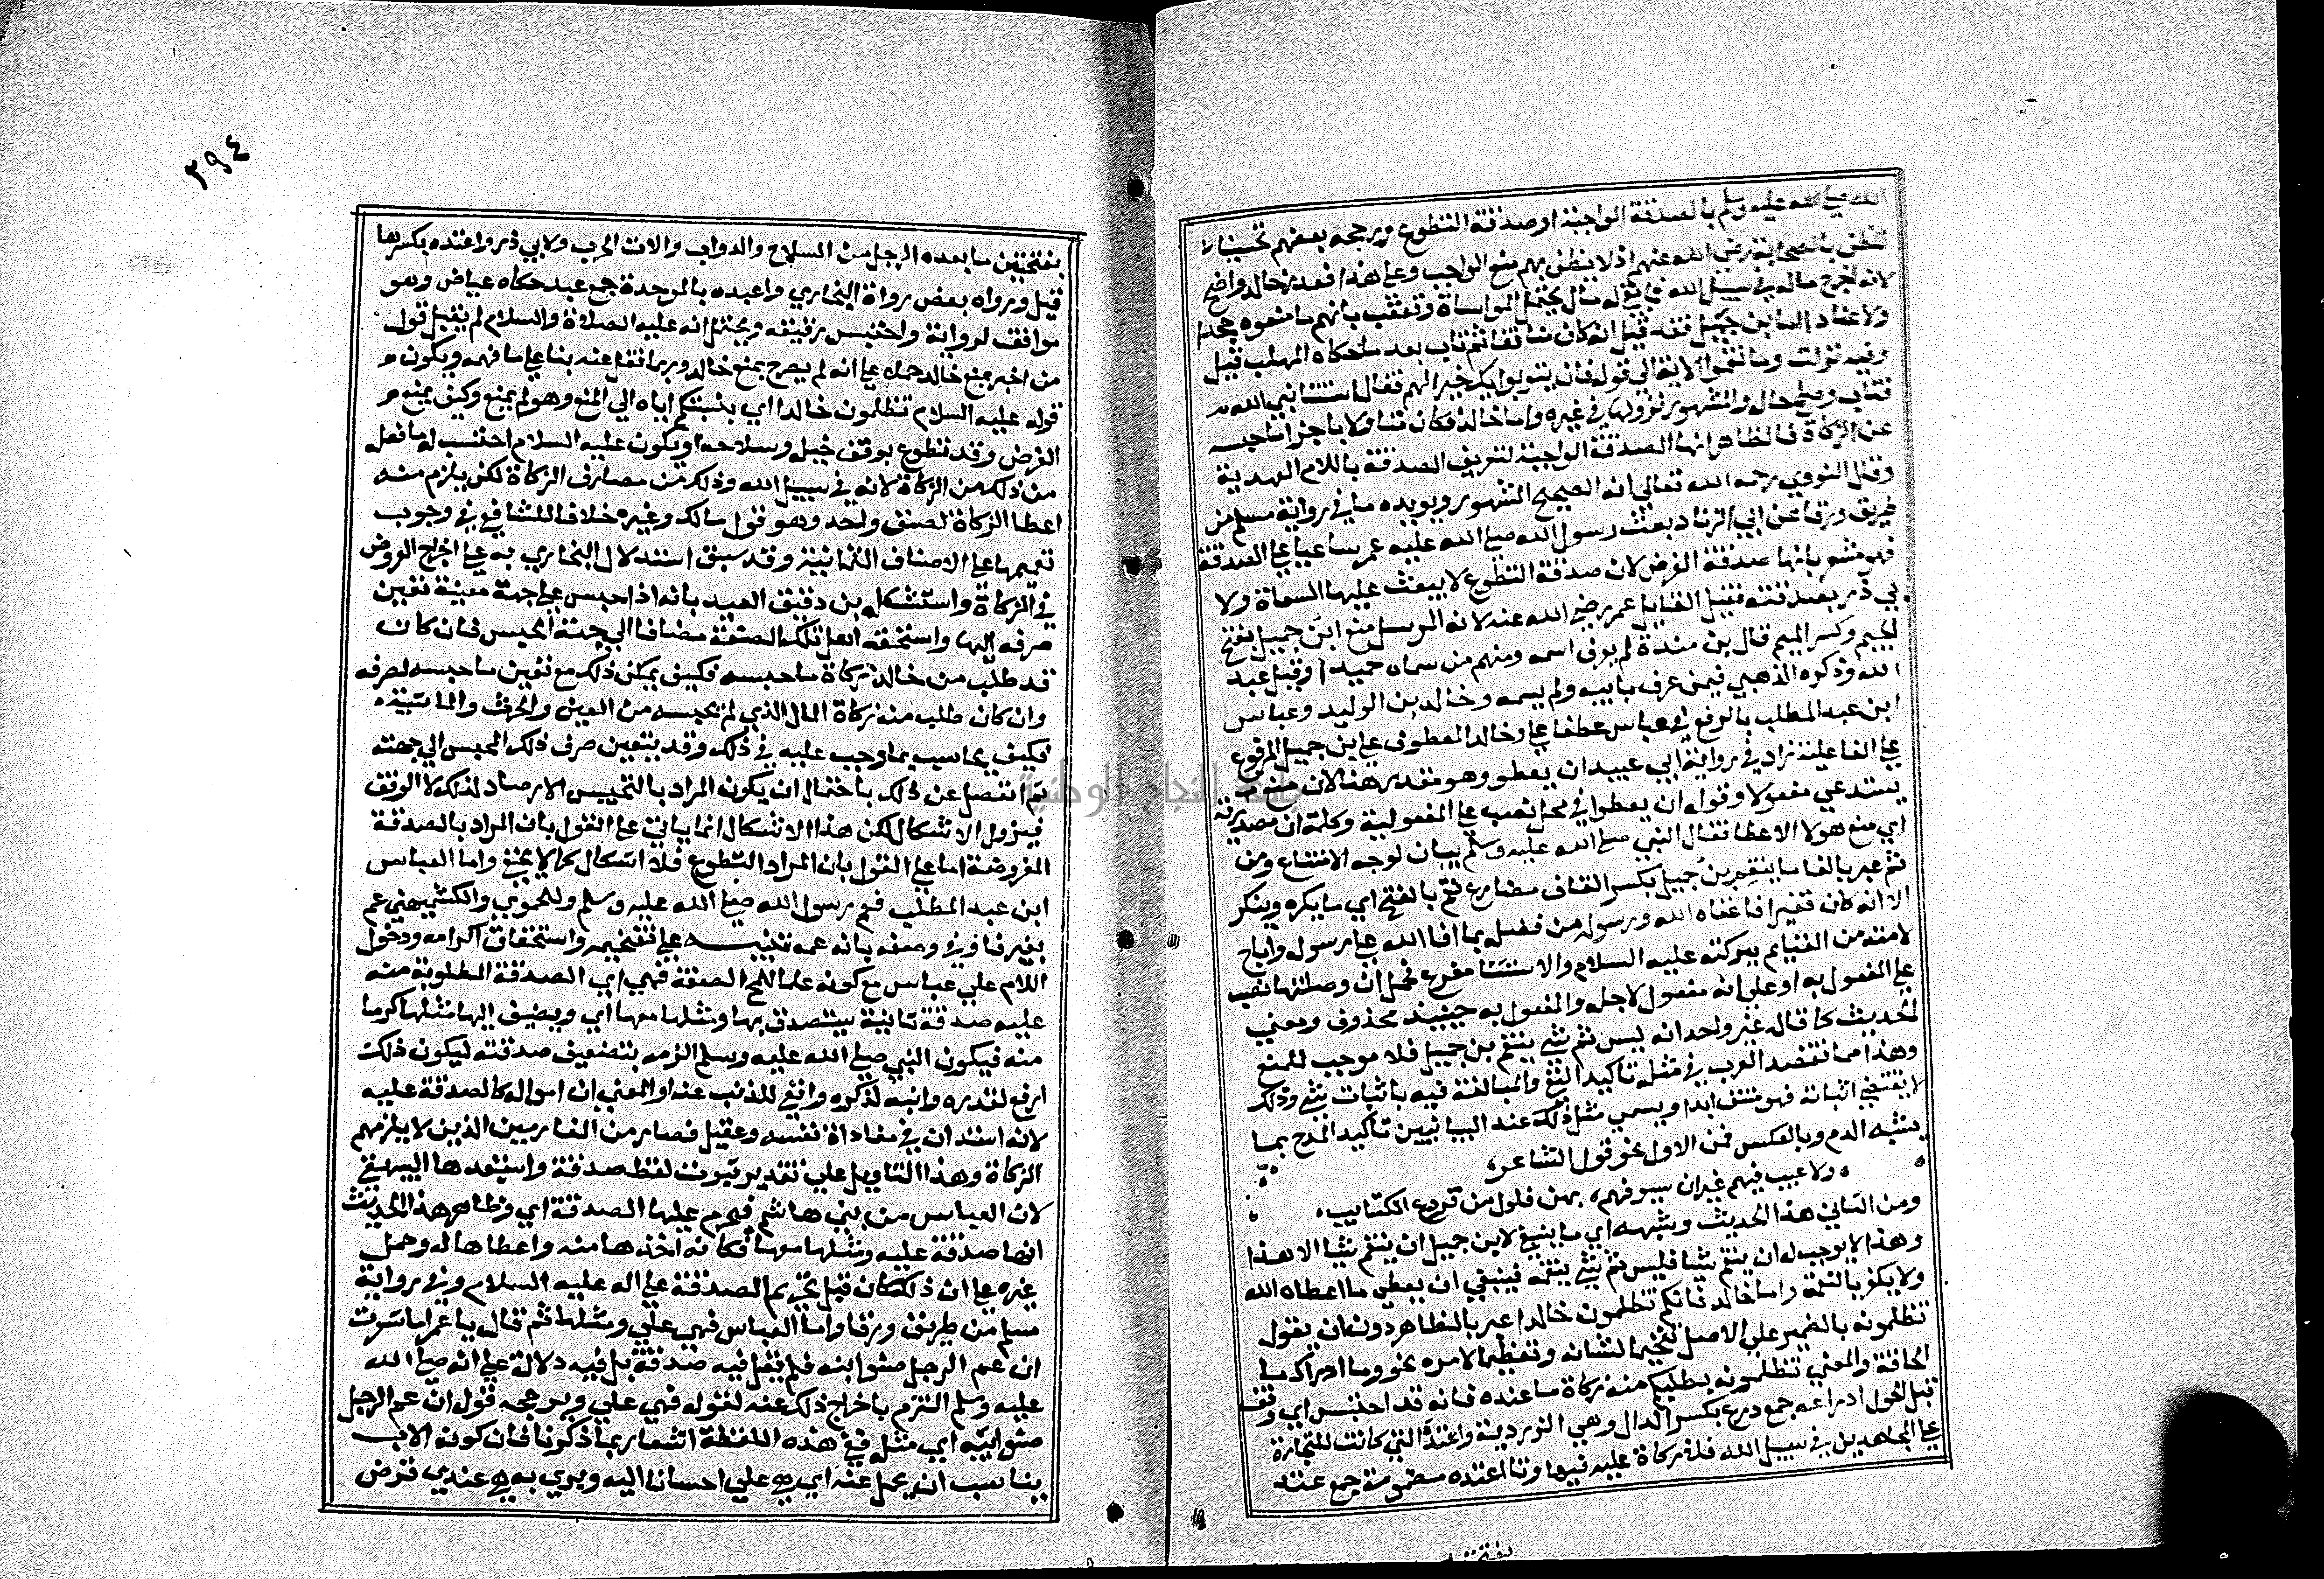 الله صلى الله عليه وسلم بالصدقة الواجبة او صدقة التطوع ورجحه بعضهم تحسينا
الظن بالصحابة رضي الله عنهم اذ لا يظن بهم منع الواجب وعلى هذا فعذر خالد واضح
لانه اخرج ماله في سبيل الله فما بقي له مال يحتمل المواساة وتعقب بانهم ما منعوه جحدا
ولا عنادا اما ابن جميل فقد قيل انه كان منافقا ثم تاب بعد ما حكاه المهلب قيل
وفيه نزلت وما نقموا الاية الى قوله فان يتوبوا يك خيرا لهم فقال استتابني الله
فتاب وصلح حاله والمشهور نزولها في غيره واما خالد فكان متاولا باجزا ما حبسه
عن الزكاة فالظاهر انها الصدقة الواجبة لتعريف الصدقة باللام العهدية
وقال النووي رحمه الله تعالى انه الصحيح المشهور ويويده ما في رواية مسلم من
طريق ورقا عن ابي الزناد بعث رسول الله صلى الله عليه عمر ساعيا على الصدقة
فهو مشعر بانها صدقة الفرض لان صدقة التطوع لا يبعث عليها السعاة ولا
بي ذر بصدقته فقيل القايل عمر رضي الله عنه لانه المرسل منع ابن جميل بفتح
الجيم وكسر الميم قال بن مندة لم يعرف اسمه ومنهم من سماه حميدا وقيل عبد
الله وذكره الذهبي فيمن عرف بابيه ولم يسمه وخالد بن الوليد وعباس
ابن عبد المطلب بالرفع في عباس عطفا على وخالد المعطوف على بن جميل المرفوع
على الفاعلية زاد في رواية ابي عبيد ان يعطو وهو مقدر هنا لان منع
يستدعي مفعولا وقوله ان يعطوا في محل نصب على المفعولية وكلمة ان مصدرية
اي منع هولا الاعطا فقال النبي صلى الله عليه وسلم بيان لوجه الامتناع ومن
ثم عبر بالفا ما ينقم بن جميل بكسر القاف مضارع نقم بالفتح اي ما يكره وينكر
الا انه كان فقيرا فاغناه الله ورسوله من فضله بما افا الله على رسوله واباح
لامته من الغنايم ببركته عليه السلام والاستثنا مفرغ فمحل ان وصلتها نصب
على المفعول به او على انه مفعول لاجله والمفعول به حينيذ محذوف ومعنى
الحديث كما قاله غير واحد انه ليس ثم شي ينقم بن جميل فلا موجب للمنع
وهذا مما تقصد العرب في مثله تاكيد النفي والمبالغة فيه باثبات شي وذلك
لا يقتضي اثباته فهو منتف ابدا ويسمى مثل ذلك عند البيانيين تاكيد المدح بما
يشبه الذم وبالعكس فمن الاول نحو قول الشاعر
ولا عيب فيهم غير ان سيوفهم بهن فلول من قراع الكتايب
ومن الثاني هذا الحديث وشبهه اي ما ينبغي لابن جميل ان ينقم شيا الا هذا
وهذا لا يوجب له ان ينقم شيا فليس ثم شي ينقمه فينبغي ان يعطي مما اعطاه الله
ولا يكفر بالنعمة واما خالد فانكم تظلمون خالدا عبر بالظاهر دون ان يقول
تظلمونه بالضمير على الاصل تفخيما لشانه وتعظيما لامره نحو وما ادراك ما
الحاقة والمعنى تظلمونه بطلبكم منه زكاة ما عنده فانه قد احتبس اي وقف
قبل الحول ادراعه جمع درع بكسر الدال وهي الزردية واعتده التي كانت للتجارة
على المجاهدين في سبيل الله فلا زكاة عليه فيها وتا اعتده مضمومة جمع عتد
بفتحتين
٣٩٤
بفتحتين ما يعده الرجل من السلاح والدواب والات الحرب ولابي ذر واعتده بكسرها
قيل ورواه بعض رواة البخاري واعبده بالموحدة جمع عبد حكاه عياض وهو
موافق لرواية واحتبس رقيقه ويحتمل انه عليه الصلاة والسلام لم يقبل قول
من اخبر بمنع خالد حمله على انه لم يصرح بمنع خالد وربما نقل عنه بنا على ما فهمه ويكون
قوله عليه السلام تظلمون خالدا اي بنسبتكم اياه الى المنع وهو لم يمنع وكيف يمنع
الفرض وقد تطوع بوقف خيله وسلاحه او يكون عليه السلام احتسب له ما فعله
من ذلك من الزكاة لانه في سبيل الله وذلك من مصارف الزكاة لكن يلزم منه
اعطا الزكاة لصنف واحد وهو قول مالك وغيره خلافا للشافعي في وجوب
تعميمها على الاصناف الثمانية وقد سبق استدلال البخاري به على اخراج العروض
في الزكاة واستشكله بن دقيق العيد بانه اذا حبس على جهة معينة تعين
صرفه اليها واستحقه اهل تلك الصفة مضافا الى جهة الحبس فان كان
قد طلب من خالد زكاة ما حبسه فكيف يمكن ذلك مع تعين ما حبسه لصرفه
وان كان طلب منه زكاة المال الذي لم يحبسه من العين والحرث والماشية
فكيف يحاسب بما وجب عليه في ذلك وقد يتعين صرف ذلك المحبس الى جهته
ثم انفصل عن ذلك باحتمال ان يكون المراد بالتحبيس الارصاد لذلك لا الوقف
فيزول الاشكال لكن هذا الاشكال انما ياتي على القول بان المراد بالصدقة
المفروضة اما على القول بان المراد التطوع فلا اشكال كما لا يخفى واما العباس
ابن عبد المطلب فعم رسول الله صلى الله عليه وسلم وللحموي والكشميهني عم
بغير فا وفي وصفه بانه عمه تنبيه على تفخيمه واستحقاق اكرامه ودخول
اللام على عباس مع كونه علما للمح الصفة فهي اي الصدقة المطلوبة منه
عليه صدقة ثابتة سيتصدق بها ومثلها معها اي ويضيف اليها مثلها كرما
منه فيكون النبي صلى الله عليه وسلم الزمه بتضعيف صدقته ليكون ذلك
ارفع لقدره وانبه لذكره وانفى للذنب عنه او المعنى ان امواله كالصدقة عليه
لانه استدان في مفاداة نفسه وعقيل فصار من الغارمين الذين لا يلزمهم
الزكاة وهذا التاويل على تقدير ثبوت لفظ صدقة واستبعدها البيهقي
لان العباس من بني هاشم فيحرم عليها الصدقة اي وظاهر هذا الحديث
انها صدقة عليه ومثلها معها فكانه اخذها منه واعطاها له وحمل
غيره على ان ذلك كان قبل تحريم الصدقة على اله عليه السلام وفي رواية
مسلم من طريق ورقا واما العباس فهي علي ومثلها ثم قال يا عمر اما شعرت
ان عم الرجل صنو ابيه فلم يقل فيه صدقة بل فيه دلالة على انه صلى الله
عليه وسلم التزم باخراج ذلك عنه لقوله فهي علي ويرجحه قول ان عم الرجل
صنو ابيه اي مثله ففي هذه اللفظة اشعار بما ذكرنا فان كونه الاب
يناسب ان يحمل عنه اي هي علي احسانا اليه وبرا به هي عندي قرض
جامعة النجاح الوطنية